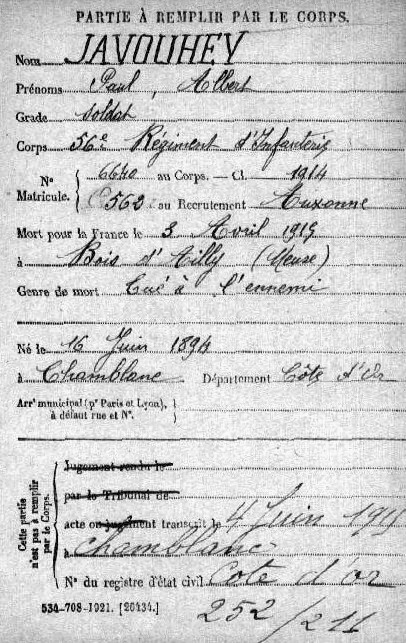 PARTIE À REMPLIR PAR LE CORPS.
Nom JAVOUHEY
Prénoms Paul, Albert
Grade soldat
Corps 56e Régiment d'Infanterie
N° Matricule. 6640 au Corps. — Cl. 1914
562 au Recrutement Auxonne
Mort pour la France le 3 Avril 1915
à Bois d'Ailly (Meuse)
Genre de mort Tué à l'ennemi
Né le 16 Juin 1894
à Chamblanc Département Côte d'Or
Arrt municipal (pr Paris et Lyon), à défaut rue et N°.
Cette partie n'est pas à remplir par le Corps.
Jugement rendu le
par le Tribunal de
acte ou jugement transcrit le 4 Juin 1915
à Chamblanc
N° du registre d'état civil Cote d'or
534-708-1921. [26434.]
252/211